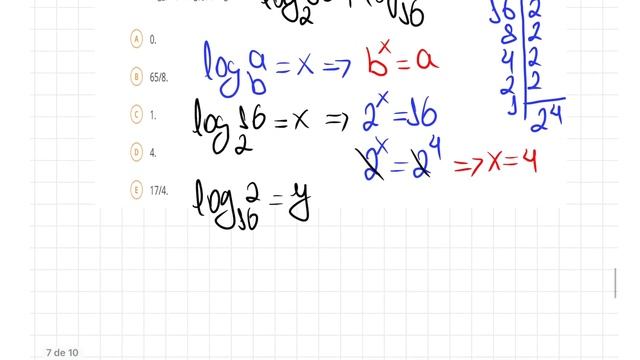 A 0.
B 65/8.
C 1.
D 4.
E 17/4.
log_b a = x => b^x = a
log_2 16 = x => 2^x = 16
2^x = 2^4 => x = 4
log_16 2 = y
16 | 2
8 | 2
4 | 2
2 | 2
1 | 2^4
7 de 10